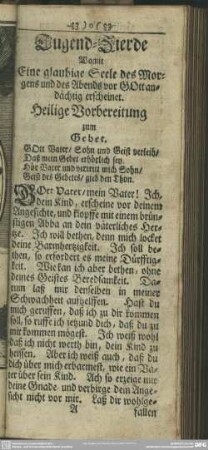 Tugend-Zierde
Womit
Eine glaubige Seele des Mor-
gens und des Abends vor GOtt an-
dächtig erscheinet.
Heilige Vorbereitung
zum
Gebet.
GOtt Vater/ Sohn und Geist verleih/
Daß mein Gebet erhörlich sey.
Hör Vater und vernim mich Sohn/
Geist des Gebets/ gieb den Thon.
Vater/ mein Vater! Ich,
dein Kind, erscheine vor deinem
Angesichte, und klopffe mit einem brün-
stigen Abba an dein väterliches Her-
tze. Ich will bethen, denn mich locket
deine Barmhertzigkeit. Ich soll be-
then, so erfordert es meine Dürfftig-
keit. Wie kan ich aber bethen, ohne
deines Geistes Beredsamkeit. Da-
rum laß mir derselben in meiner
Schwachheit auffhelffen. Hast du
mich geruffen, daß ich zu dir kommen
soll, so ruffe ich ietzund dich, daß du zu
mir kommen mögest. Ich weiß wohl
daß ich nicht werth bin, dein Kind zu
heissen. Aber ich weiß auch, daß du
dich über mich erbarmest, wie ein Va-
ter über sein Kind. Ach so erzeige mir
deine Gnade und verbirge dein Ange-
sicht nicht vor mir. Laß dir wohlge-
A fallen